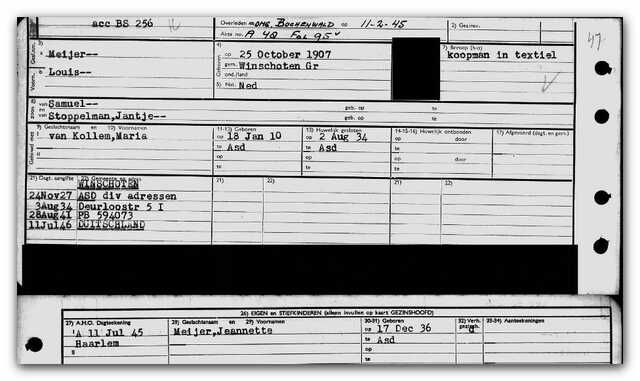 acc BS 256
Overleden OMG. BOCHENWALD op 11-2-45
Akte no. A 48 Fol 95v
2) Gezinsv.
47
3)
Meijer--
4)
op 25 October 1907
gem. Winschoten Gr
ond./land
7) Beroep
koopman in textiel
Louis--
5) Nat. Ned
Samuel-- geb. op te
Stoppelman,Jantje-- geb. op te
9) Geslachtsnaam en 10) Voornamen
van Kollem,Maria
11-12) Geboren
op 18 Jan 10
te Asd
13) Huwelijk gesloten
op 2 Aug 34
te Asd
14-15-16) Huwelijk ontbonden
op door
te door
17) Afgevoerd (dagt. en gem.)
21) Dagt. aangifte 22) Gemeente en adres
21) 22) 21) 22)
WINSCHOTEN
24Nov27 ASD div adressen
3Aug34 Deurloostr 5 I
28Aug41 PB 594073
11Jul46 DUITSCHLAND
26) EIGEN en STIEFKINDEREN (alleen invullen op kaart GEZINSHOOFD)
27) A.H.O. Dagtekening
'A 11 Jul 45
Haarlem
28) Geslachtsnaam en 29) Voornamen
Meijer,Jeannette
30-31) Geboren
op 17 Dec 36
te Asd
32) Verh. gezinsh.
d
33-34) Aantekeningen